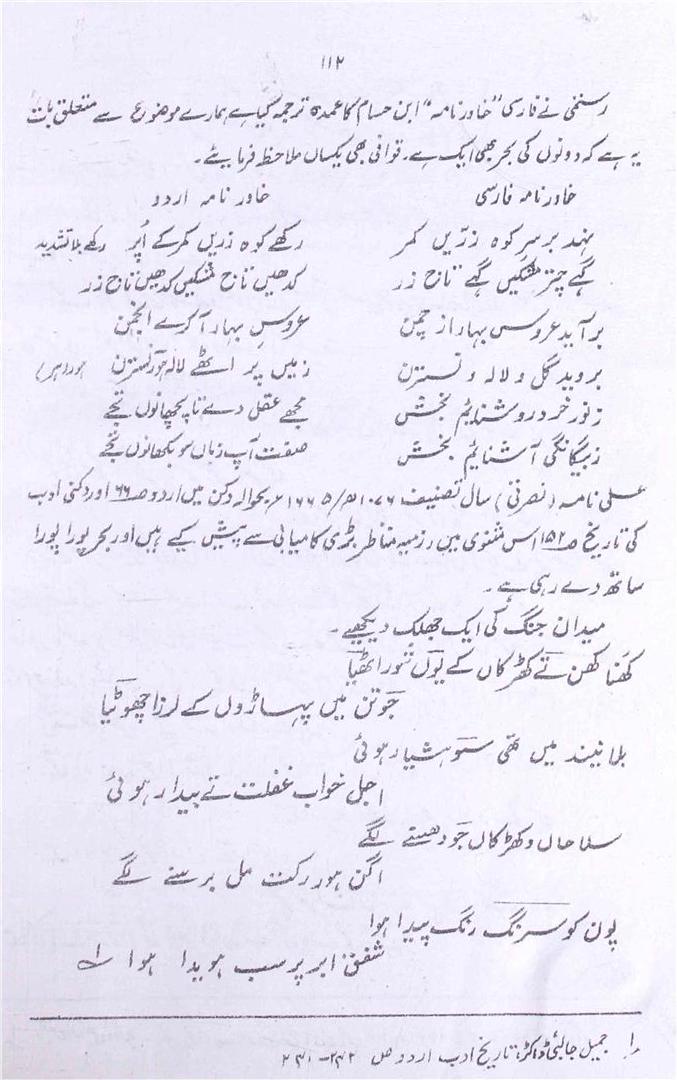 ۱۱۲
رستمی نے فارسی "خاور نامہ" ابن حسام کا عمدہ ترجمہ کیا ہے ہمارے موضوع سے متعلق بات
یہ ہے کہ دونوں کی بحر بھی ایک ہے۔ قوافی بھی یکساں ملاحظہ فرمایئے۔
خاور نامہ فارسی خاور نامہ اردو
نہد بر سر کوہ زرّیں کمر رکھے کوہ زریں کمر کے اُپر رکھے بلا تشدید
گہے چتر مشکیں گہے تاج زر کدھیں تاج مشکیں کدھیں تاج زر
بر آید عروس بہار از چمن عروس بہار آ کرے انجمن
بروید گل و لالہ و نسترن زمیں پر اٹھے لالہ ہور نسترن ہور (اور)
ز نور خرد روشنائیم بخش مجھے عقل دے تا پچھانوں تجے
ز بیگانگی آشنائیم بخش صفت آپ زباں سو بکھانوں تجے
علی نامہ (نصرتی) سال تصنیف ۱۰۷۶ھ/۱۶۶۵ء بحوالہ دکن میں اردو ص ۶۶ اور دکنی ادب
کی تاریخ ص ۱۵۲ اس مثنوی میں رزمیہ مناظر بڑی کامیابی سے پیش کیے ہیں اور بحر پورا پورا
ساتھ دے رہی ہے۔
میدان جنگ کی ایک جھلک دیکھیے۔
کھنا کھن تے کھڑکاں کے یوں شور اٹھیا
جو تن میں پہاڑوں کے لرزا چھوٹیا
بلا نیند میں تھی سو ہشیار ہوئی
اجل خواب غفلت تے بیدار ہوئی
سلاحاں و کھڑکاں جو دھسنے لگے
اگن ہور رکت مل برسنے لگے
پون کو سرنگ رنگ پیدا ہوا
شفق ابر پر سب ہویدا ہوا ۱
۱ جمیل جالبی ڈاکٹر، تاریخ ادب اردو ص ۲۴۲-۲۴۱